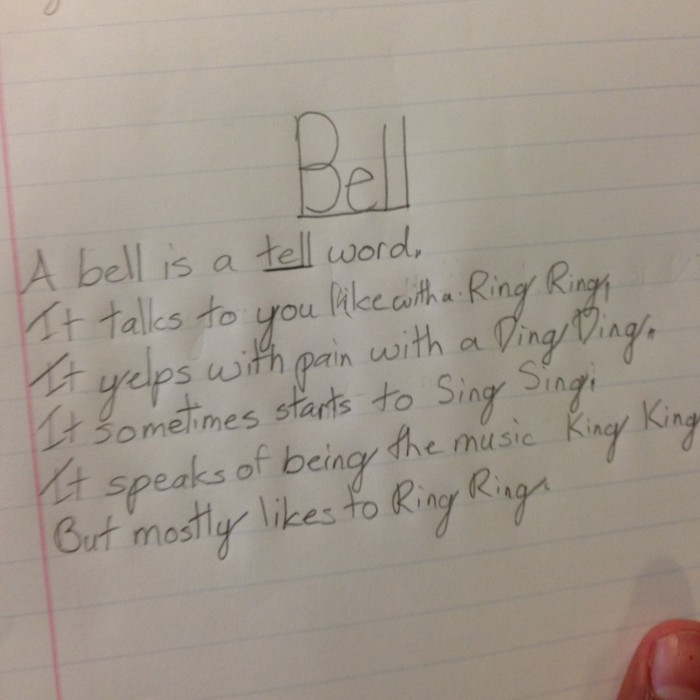 Bell
A bell is a tell word.
It talks to you like with a Ring Ring,
It yelps with pain with a Ding Ding.
It sometimes starts to Sing Sing,
It speaks of being the music King King
But mostly likes to Ring Ring.